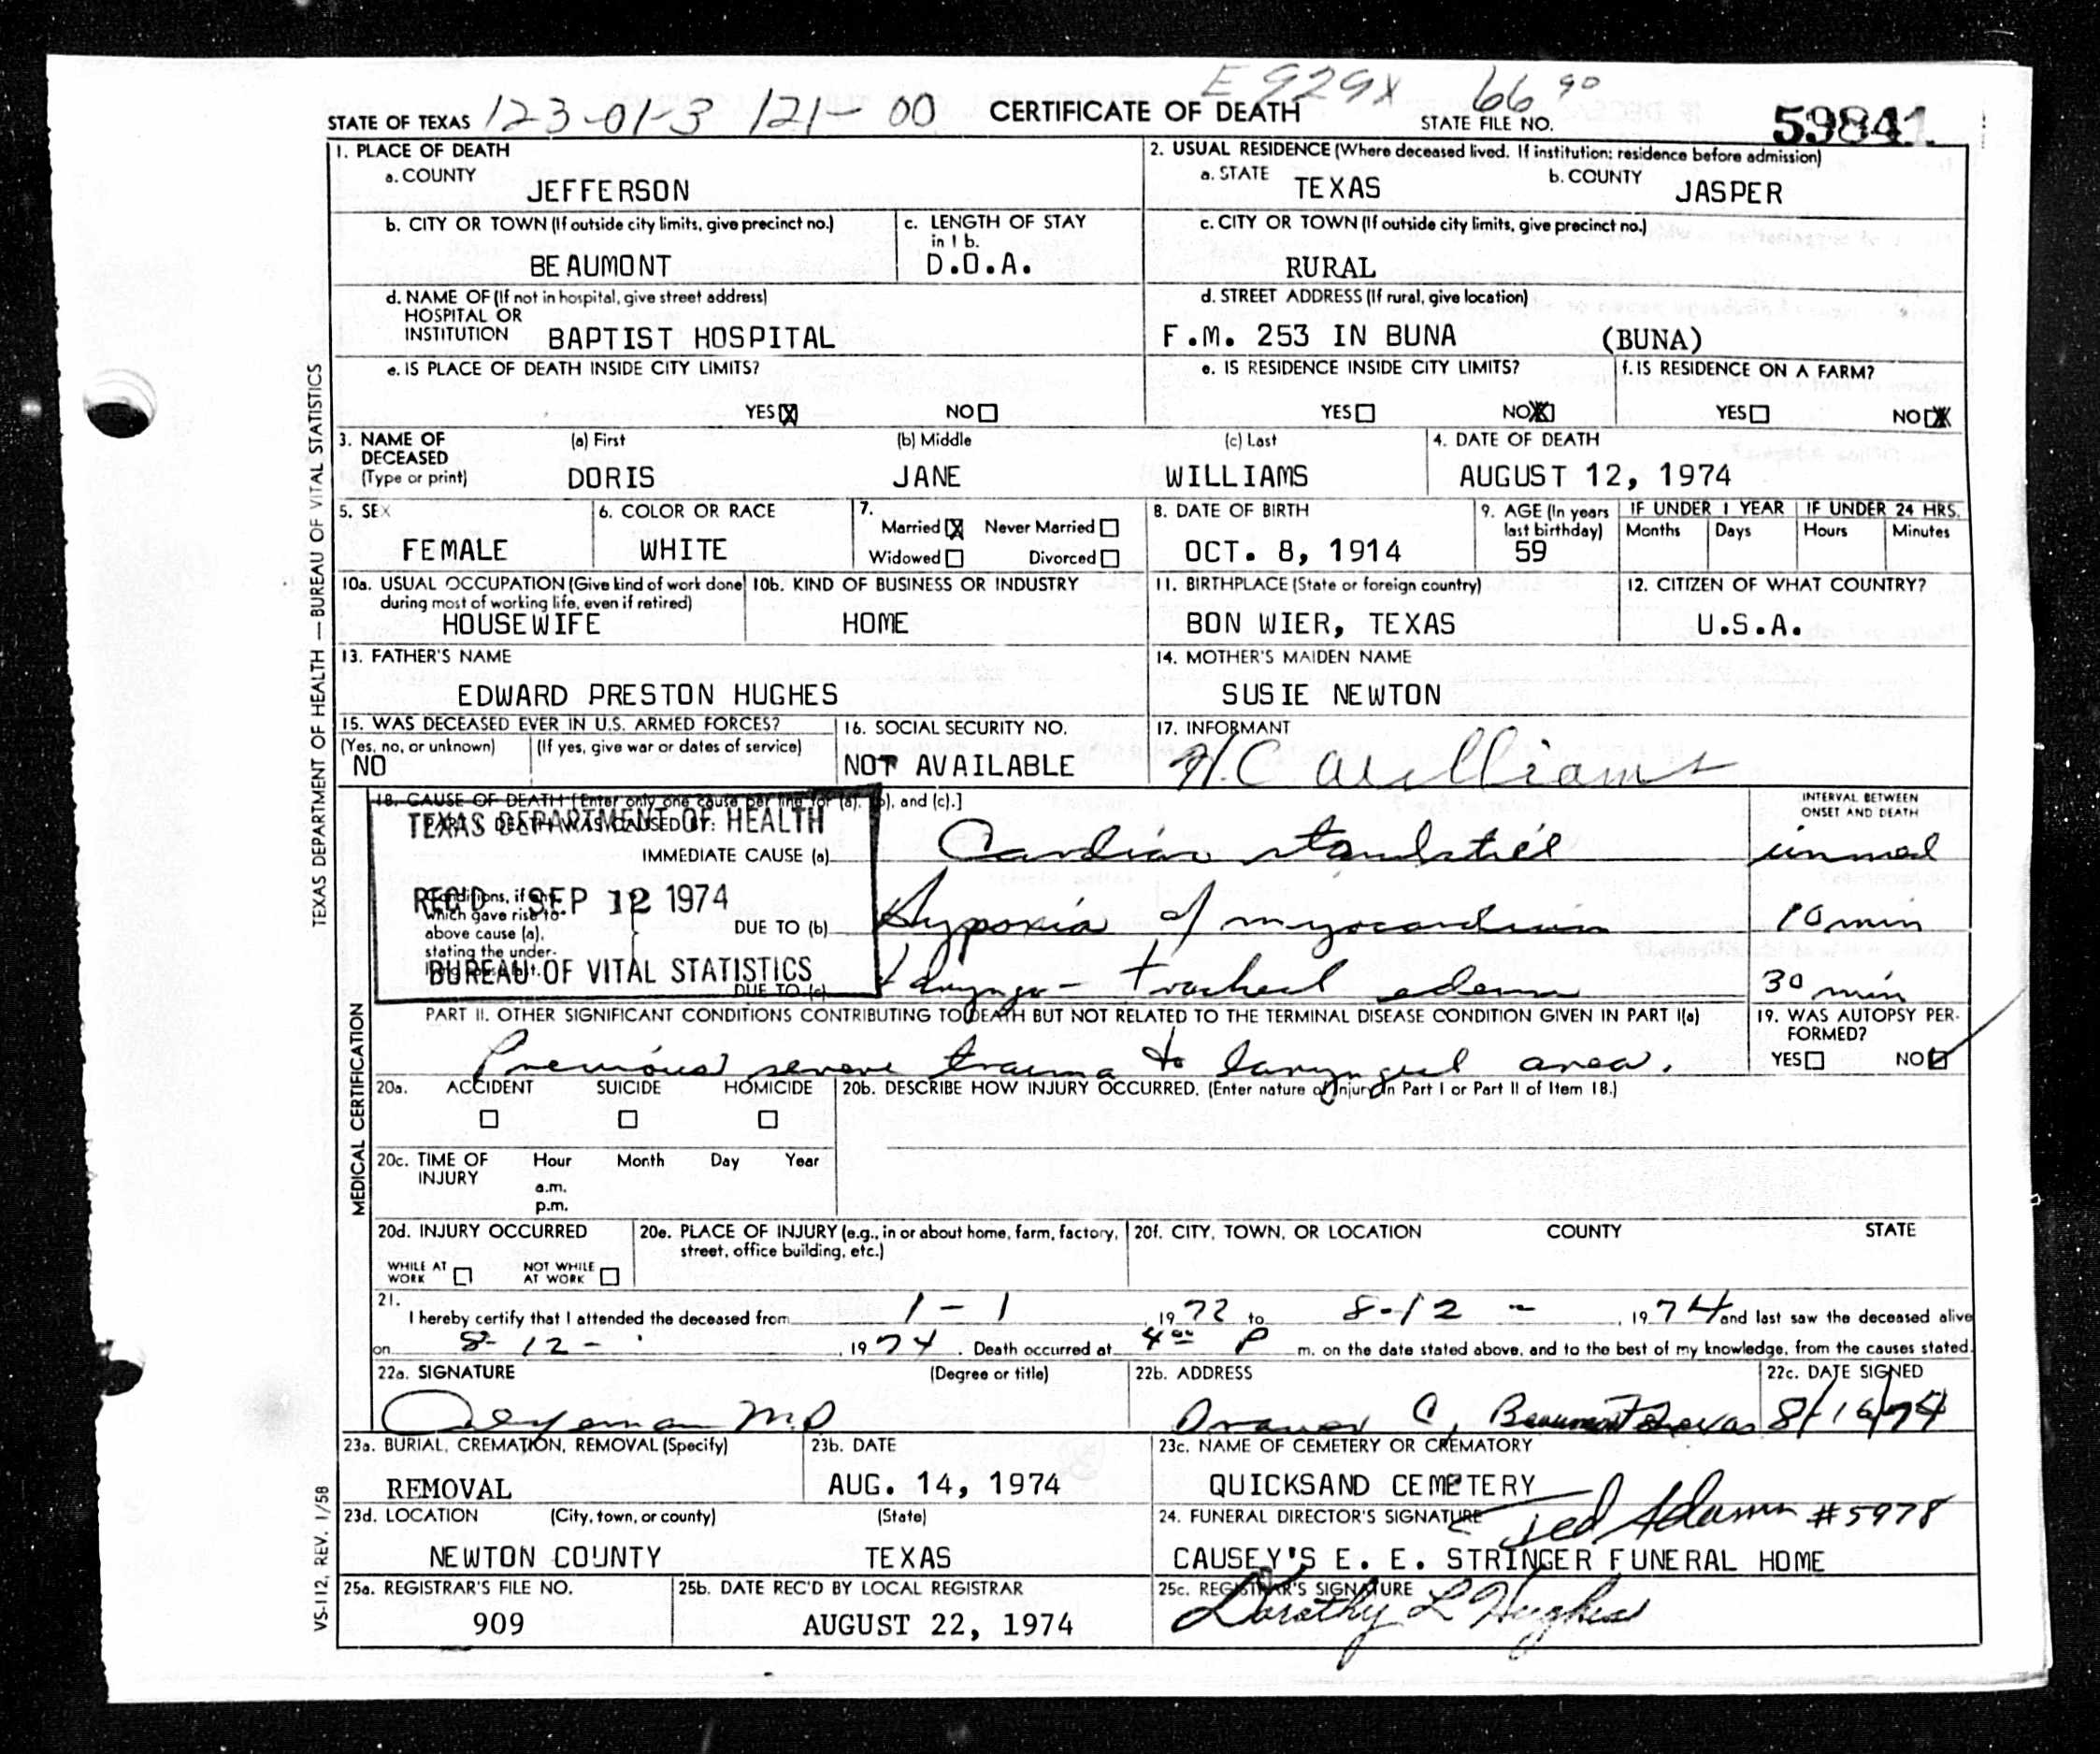 E929X 66 90
STATE OF TEXAS 123-01-3 121-00 CERTIFICATE OF DEATH STATE FILE NO. 59841
1. PLACE OF DEATH
a. COUNTY
JEFFERSON
2. USUAL RESIDENCE (Where deceased lived. If institution: residence before admission)
a. STATE TEXAS b. COUNTY JASPER
b. CITY OR TOWN (If outside city limits, give precinct no.)
BEAUMONT
c. LENGTH OF STAY
in 1 b.
D.O.A.
c. CITY OR TOWN (If outside city limits, give precinct no.)
RURAL
d. NAME OF (If not in hospital, give street address)
HOSPITAL OR
INSTITUTION BAPTIST HOSPITAL
d. STREET ADDRESS (If rural, give location)
F.M. 253 IN BUNA (BUNA)
e. IS PLACE OF DEATH INSIDE CITY LIMITS?
YES NO
e. IS RESIDENCE INSIDE CITY LIMITS?
YES NO
f. IS RESIDENCE ON A FARM?
YES NO
3. NAME OF
DECEASED
(Type or print)
(a) First (b) Middle (c) Last
DORIS JANE WILLIAMS
4. DATE OF DEATH
AUGUST 12, 1974
5. SEX
FEMALE
6. COLOR OR RACE
WHITE
7.
Married X Never Married
Widowed Divorced
8. DATE OF BIRTH
OCT. 8, 1914
9. AGE (In years
last birthday)
59
IF UNDER 1 YEAR IF UNDER 24 HRS.
Months Days Hours Minutes
10a. USUAL OCCUPATION (Give kind of work done
during most of working life, even if retired)
HOUSEWIFE
10b. KIND OF BUSINESS OR INDUSTRY
HOME
11. BIRTHPLACE (State or foreign country)
BON WIER, TEXAS
12. CITIZEN OF WHAT COUNTRY?
U.S.A.
13. FATHER'S NAME
EDWARD PRESTON HUGHES
14. MOTHER'S MAIDEN NAME
SUSIE NEWTON
15. WAS DECEASED EVER IN U.S. ARMED FORCES?
(Yes, no, or unknown) (If yes, give war or dates of service)
NO
16. SOCIAL SECURITY NO.
NOT AVAILABLE
17. INFORMANT
H.C. Williams
18. CAUSE OF DEATH [Enter only one cause per line for (a), (b), and (c).]
INTERVAL BETWEEN
ONSET AND DEATH
TEXAS DEPARTMENT OF HEALTH
REC'D SEP 12 1974
BUREAU OF VITAL STATISTICS
IMMEDIATE CAUSE (a) Cardiac standstill immed
Conditions, if any,
which gave rise to
above cause (a),
stating the under-
DUE TO (b) Hypoxia of myocardium 10 min
DUE TO (c) Laryngo-tracheal edema 30 min
PART II. OTHER SIGNIFICANT CONDITIONS CONTRIBUTING TO DEATH BUT NOT RELATED TO THE TERMINAL DISEASE CONDITION GIVEN IN PART I(a)
Previous severe trauma to laryngeal area.
19. WAS AUTOPSY PER-
FORMED?
YES NO
20a. ACCIDENT SUICIDE HOMICIDE
20b. DESCRIBE HOW INJURY OCCURRED. (Enter nature of injury in Part I or Part II of Item 18.)
20c. TIME OF
INJURY
Hour Month Day Year
a.m.
p.m.
20d. INJURY OCCURRED
WHILE AT
WORK
NOT WHILE
AT WORK
20e. PLACE OF INJURY (e.g., in or about home, farm, factory,
street, office building, etc.)
20f. CITY, TOWN, OR LOCATION COUNTY STATE
21.
I hereby certify that I attended the deceased from 1-1, 1972 to 8-12-, 1974 and last saw the deceased alive
on 8-12-, 1974. Death occurred at 4 00 P m. on the date stated above, and to the best of my knowledge, from the causes stated.
22a. SIGNATURE (Degree or title)
M.D
22b. ADDRESS
Drawer C, Beaumont Texas
22c. DATE SIGNED
8/16/74
23a. BURIAL, CREMATION, REMOVAL (Specify)
REMOVAL
23b. DATE
AUG. 14, 1974
23c. NAME OF CEMETERY OR CREMATORY
QUICKSAND CEMETERY
23d. LOCATION (City, town, or county) (State)
NEWTON COUNTY TEXAS
24. FUNERAL DIRECTOR'S SIGNATURE Ted Adams #5978
CAUSEY'S E. E. STRINGER FUNERAL HOME
25a. REGISTRAR'S FILE NO.
909
25b. DATE REC'D BY LOCAL REGISTRAR
AUGUST 22, 1974
25c. REGISTRAR'S SIGNATURE
Dorothy L Hughes
TEXAS DEPARTMENT OF HEALTH — BUREAU OF VITAL STATISTICS
MEDICAL CERTIFICATION
VS-112, REV. 1/58